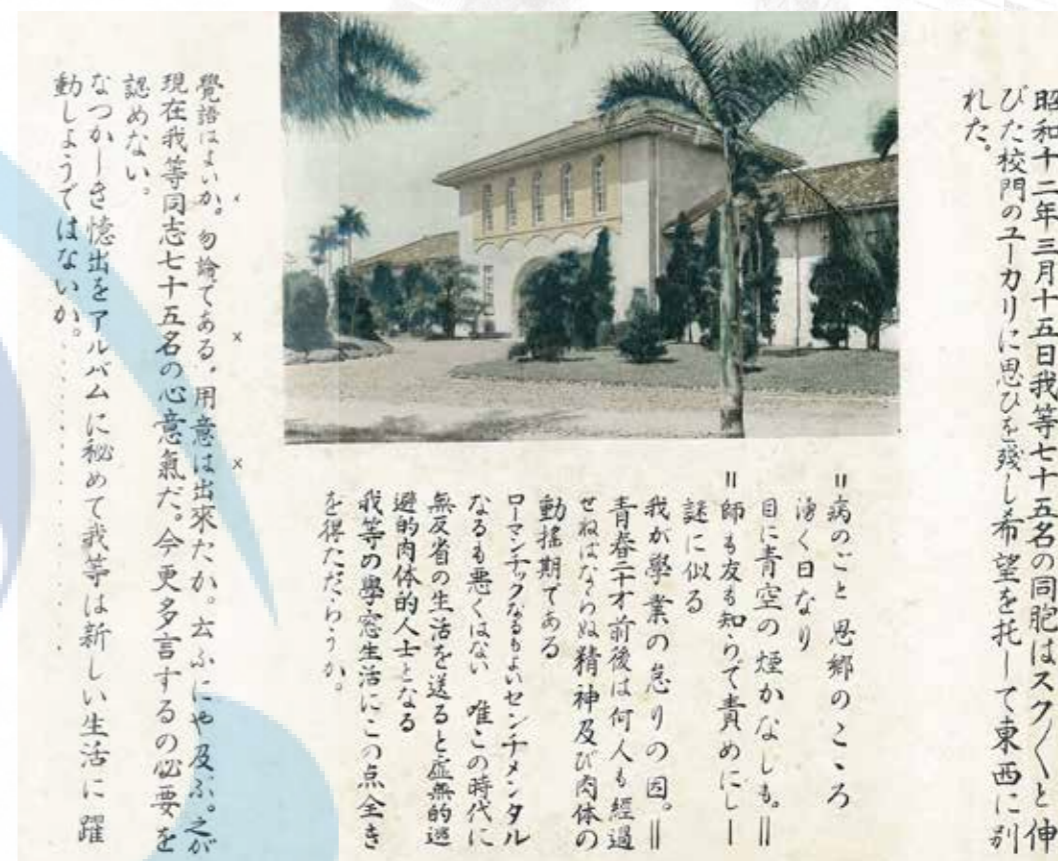 昭和十二年三月十五日我等七十五名の同胞はスク〳〵と伸
びた校門のユーカリに思ひを殘し希望を托して東西に別
れた。
〃病のごと思郷のこころ
湧く日なり
目に青空の煙かなしも。〃
〃師も友も知らで責めにし―
謎に似る
我が學業の怠りの因。〃
青春二才前後は何人も經過
せねばならぬ精神及び肉体の
動搖期である
ローマンチックなるもよいセンチメンタル
なるも悪くはない 唯この時代に
無反省の生活を送ると虚無的逃
避的肉体的人士となる
我等の學窓生活にこの点全き
を得ただらうか。
× × ×
覺語はよいか。勿論である。用意は出來たか。云ふにや及ぶ。之が
現在我等同志七十五名の心意氣だ。今更多言するの必要を
認めない。
なつかしき憶出をアルバムに秘めて我等は新しい生活に躍
動しようではないか。. . . . . . . . . .